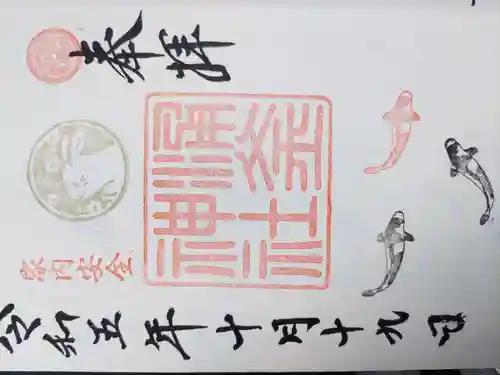 奉拝
家内安全
令和五年十月十九日